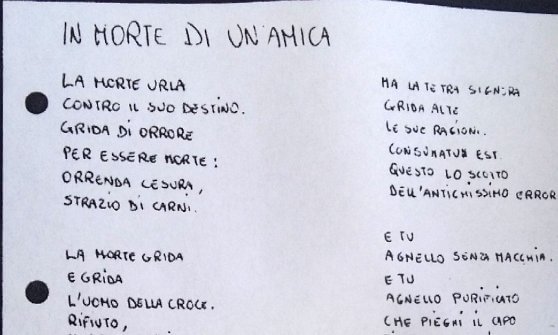 IN MORTE DI UN'AMICA
LA MORTE URLA
CONTRO IL SUO DESTINO.
GRIDA DI ORRORE
PER ESSERE MORTE:
ORRENDA CESURA,
STRAZIO DI CARNI.
LA MORTE GRIDA
E GRIDA
L'UOMO DELLA CROCE.
RIFIUTO,
MA LA TETRA SIGNORA
GRIDA ALTE
LE SUE RAGIONI.
CONSUMATUM EST.
QUESTO LO SCOTTO
DELL'ANTICHISSIMO ERROR
E TU
AGNELLO SENZA MACCHIA.
E TU
AGNELLO PURIFICATO
CHE PIEGHI IL CAPO